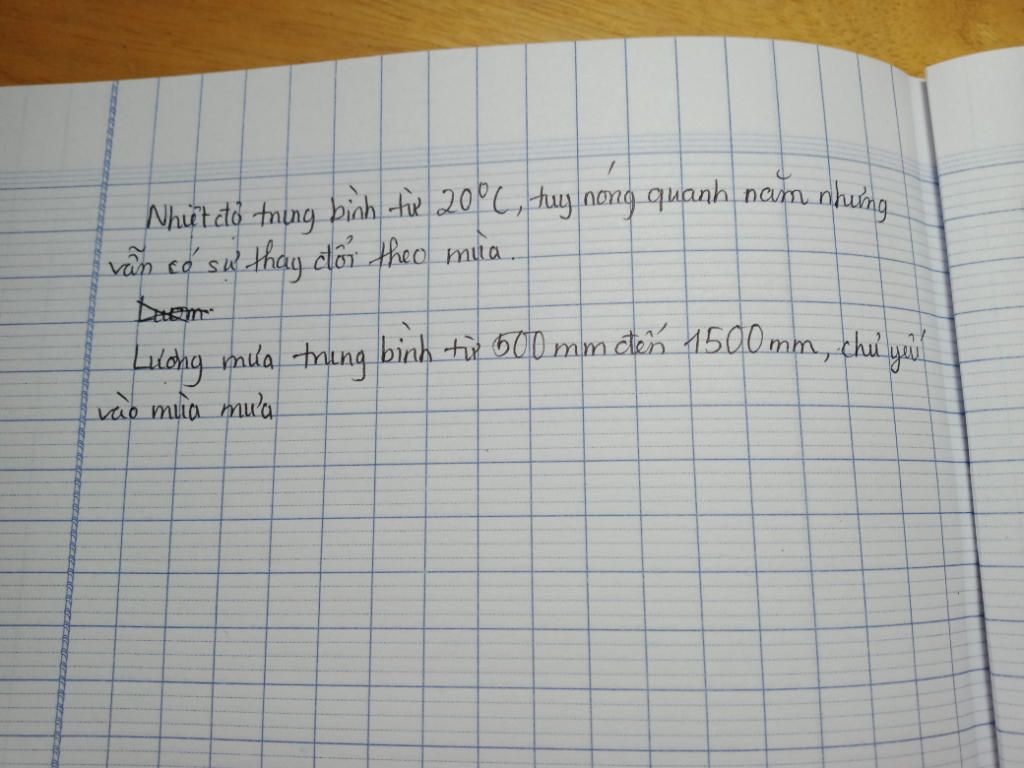 Nhiệt độ trung bình từ 20°C, tuy nóng quanh năm nhưng
vẫn có sự thay đổi theo mùa.
Lượng mưa trung bình từ 500mm đến 1500mm, chủ yếu
vào mùa mưa